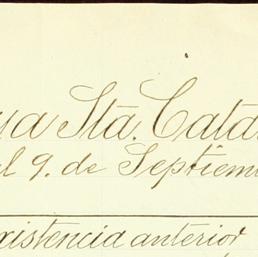 ua Sta. Cata
al 9. de Septiem
xistencia anterior